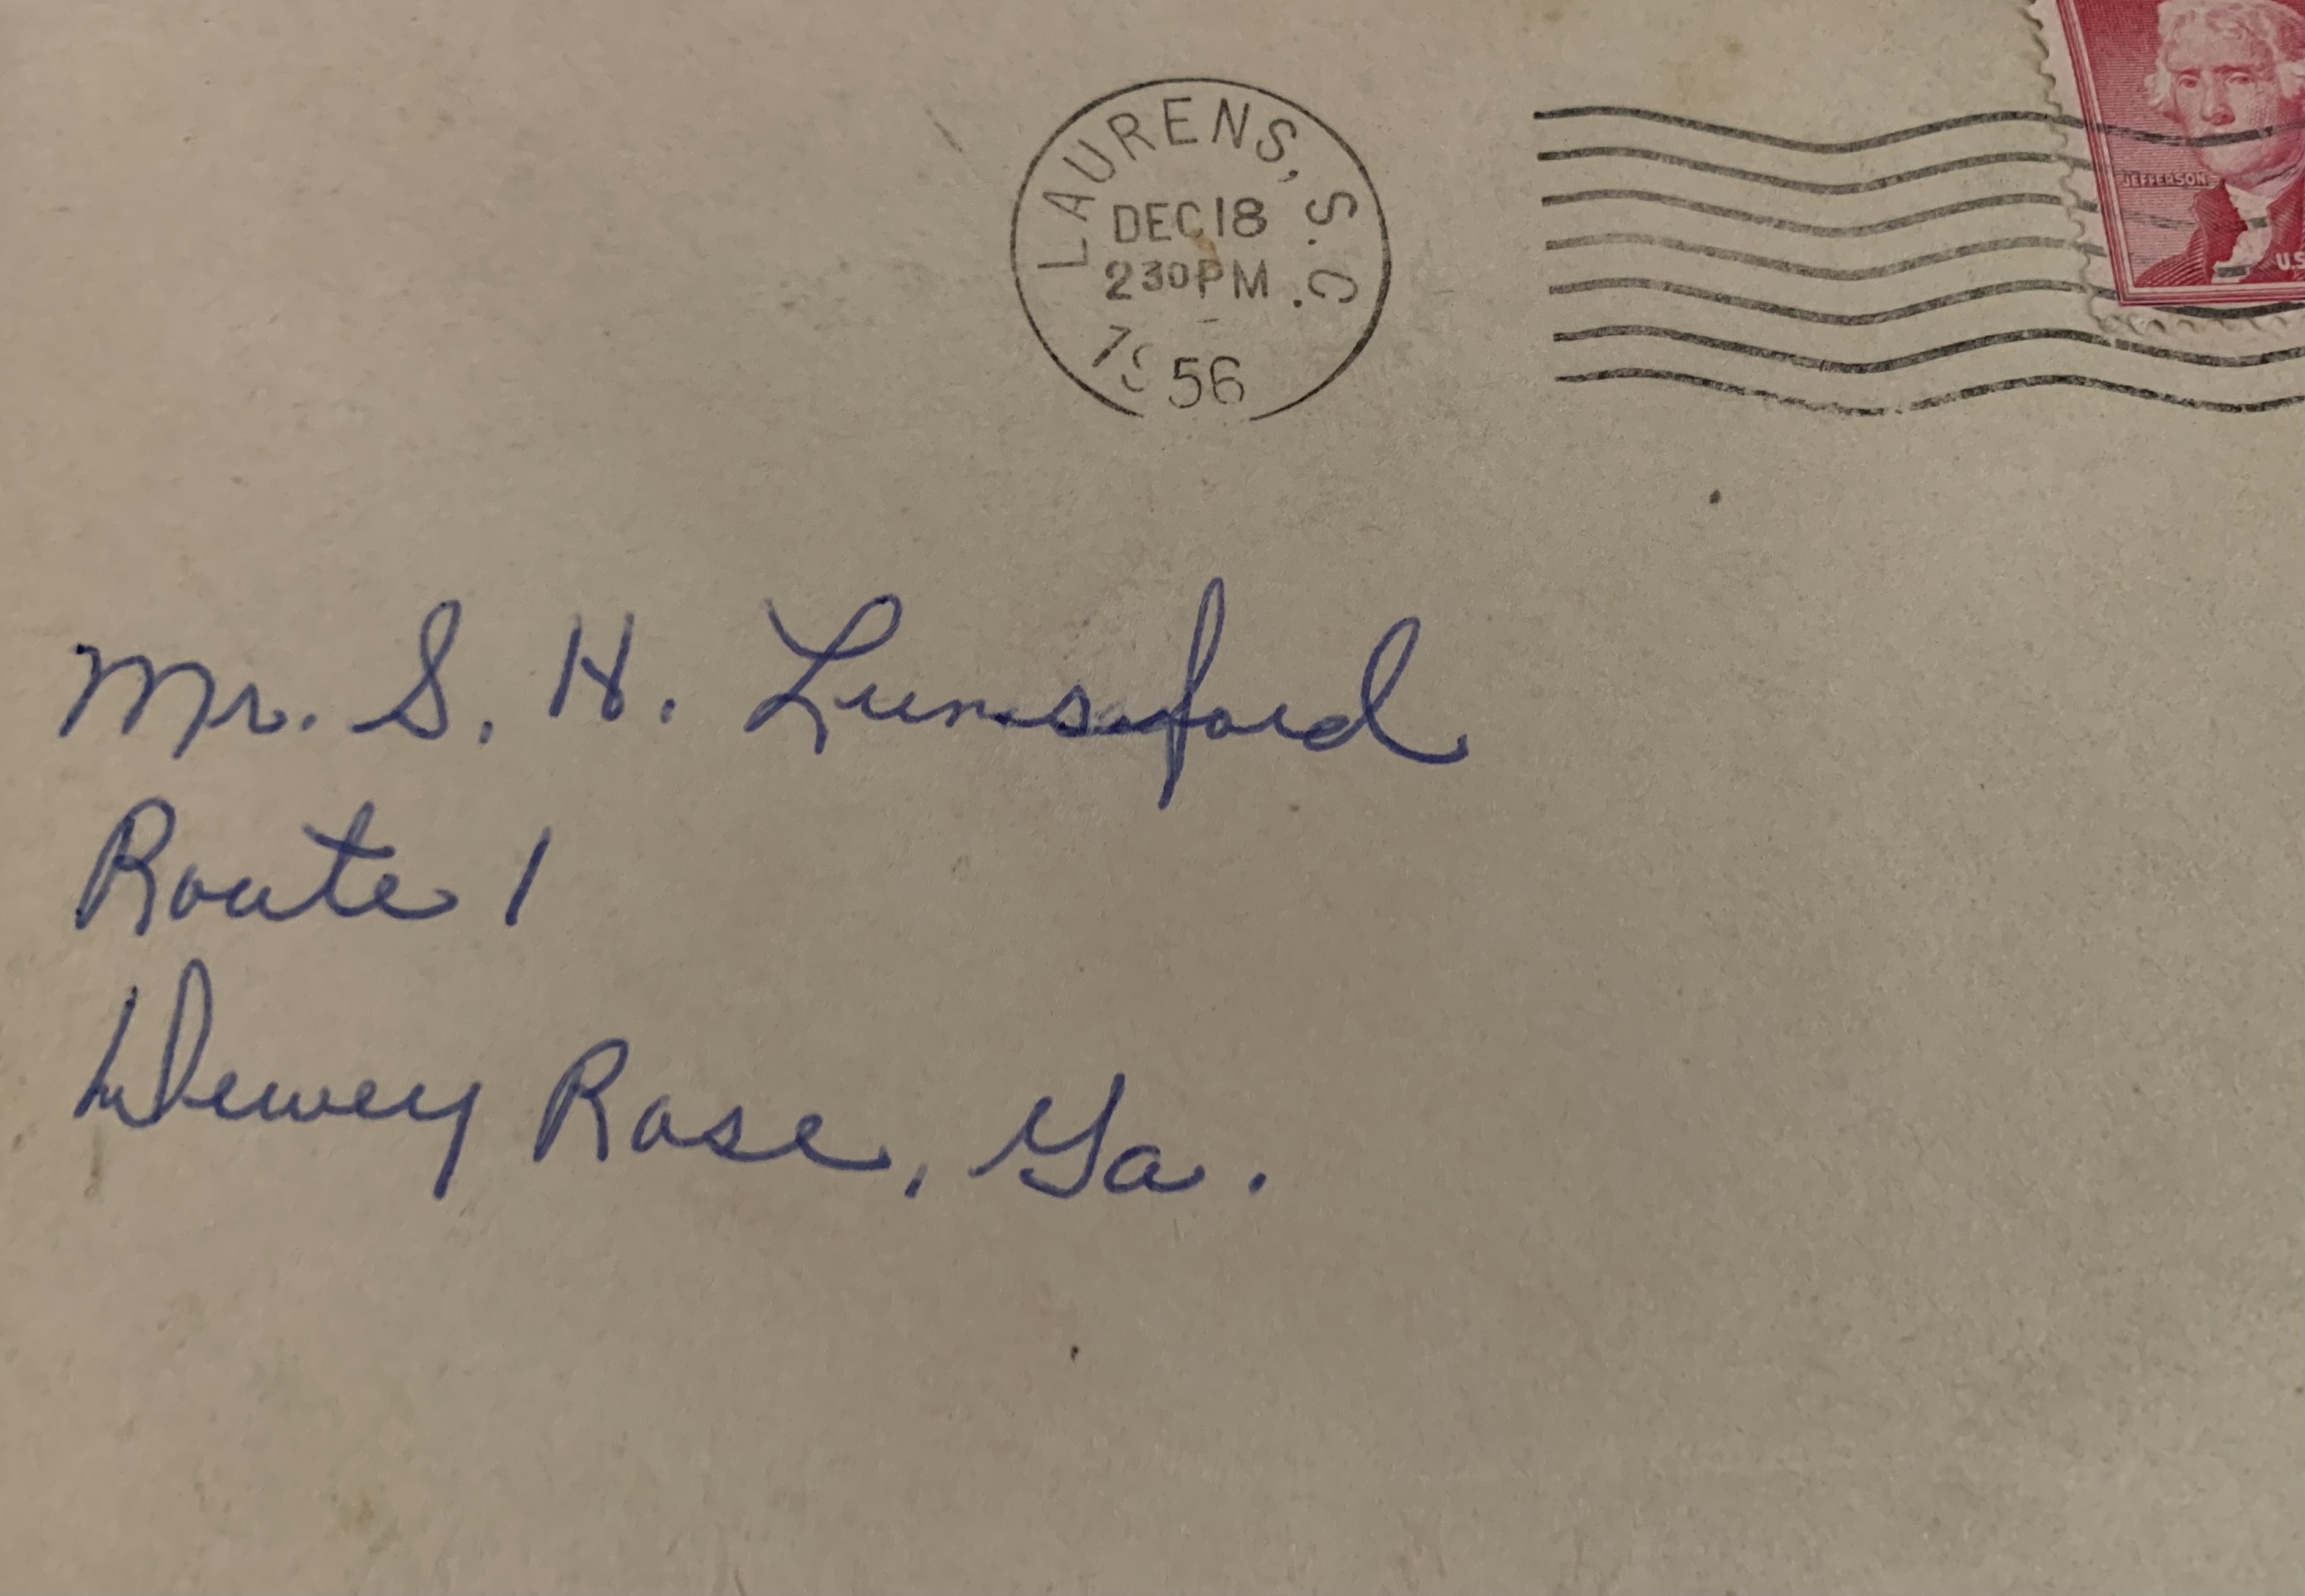 LAURENS, S.C.
DEC 18
2 30 PM
1956
JEFFERSON
U.S.
Mr. S. H. Lunsford
Route 1
Dewey Rose, Ga.